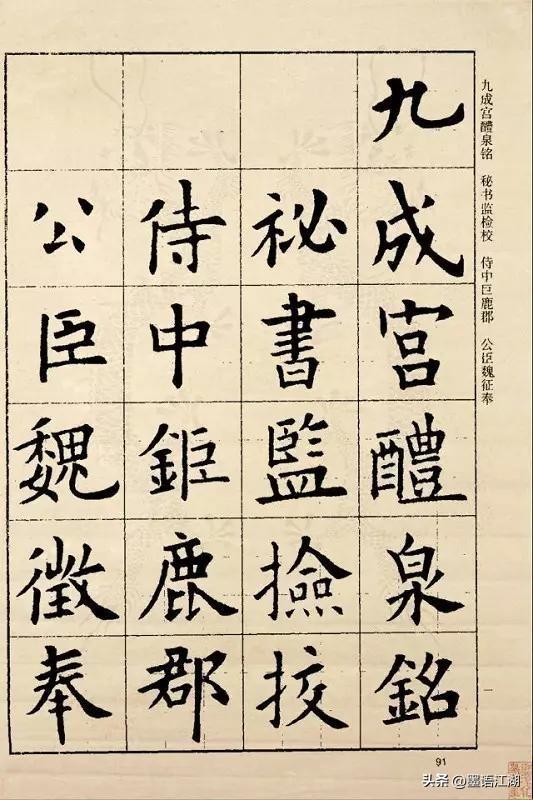 九成宫醴泉铭 秘书监检校 侍中巨鹿郡 公臣魏征奉
九成宮醴泉銘
祕書監撿挍
侍中鉅鹿郡
公臣魏徵奉
91
头条 @墨语江湖